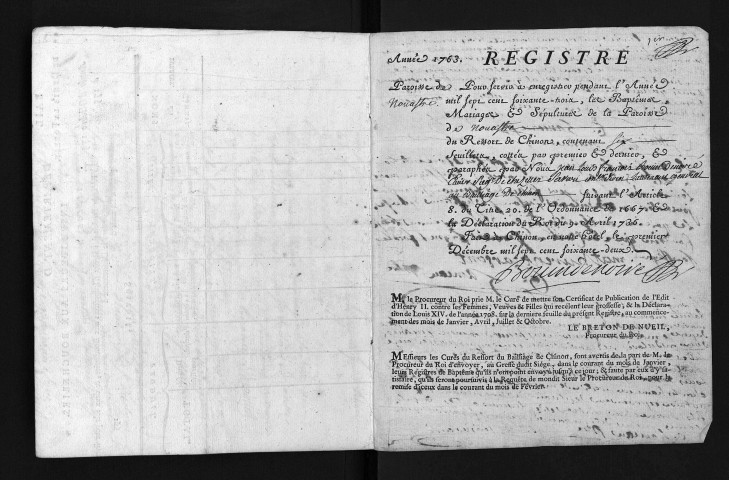 1er
Année 1763. REGISTRE
Paroisse de Pour servir à enregistrer pendant l'Année
Nouastre mil sept cent soixante-trois, les Baptêmes
Mariages & Sépultures de la Paroisse
de Nouastre
du Ressort de Chinon, contenant six
feuillets, cottéz par premier & dernier, &
paraphéz par Nous Jean Louis François
au Bailliage de Chinon suivant l'Article
8. du Titre 20. de l'Ordonnance de 1667. &
la Déclaration du Roi du 9. Avril 1736.
Fait à Chinon, en notre hôtel, le premier
Décembre mil sept cent soixante-deux.
M. le Procureur du Roi prie M. le Curé de mettre son Certificat de Publication de l'Edit
d'Henry II. contre les Femmes, Veuves & Filles qui recélent leur grossesse; & la Déclara-
tion de Louis XIV. de l'année 1708. sur la derniere feuille du présent Registre, au commence-
ment des mois de Janvier, Avril, Juillet & Octobre.
LE BRETON DE NUEIL,
Procureur du Roi.
MEssieurs les Curés du Ressort du Bailliage de Chinon, sont avertis de la part de M. le
Procureur du Roi d'envoyer, au Greffe dudit Siége, dans le courant du mois de Janvier,
leurs Registres de Baptême qu'ils n'ont point envoyé jusqu'à ce jour; & faute par eux d'y sa-
tisfaire, qu'ils seront poursuivis à la Requête de mondit Sieur le Procureur du Roi, pour la
remise d'iceux dans le courant du mois de Février.